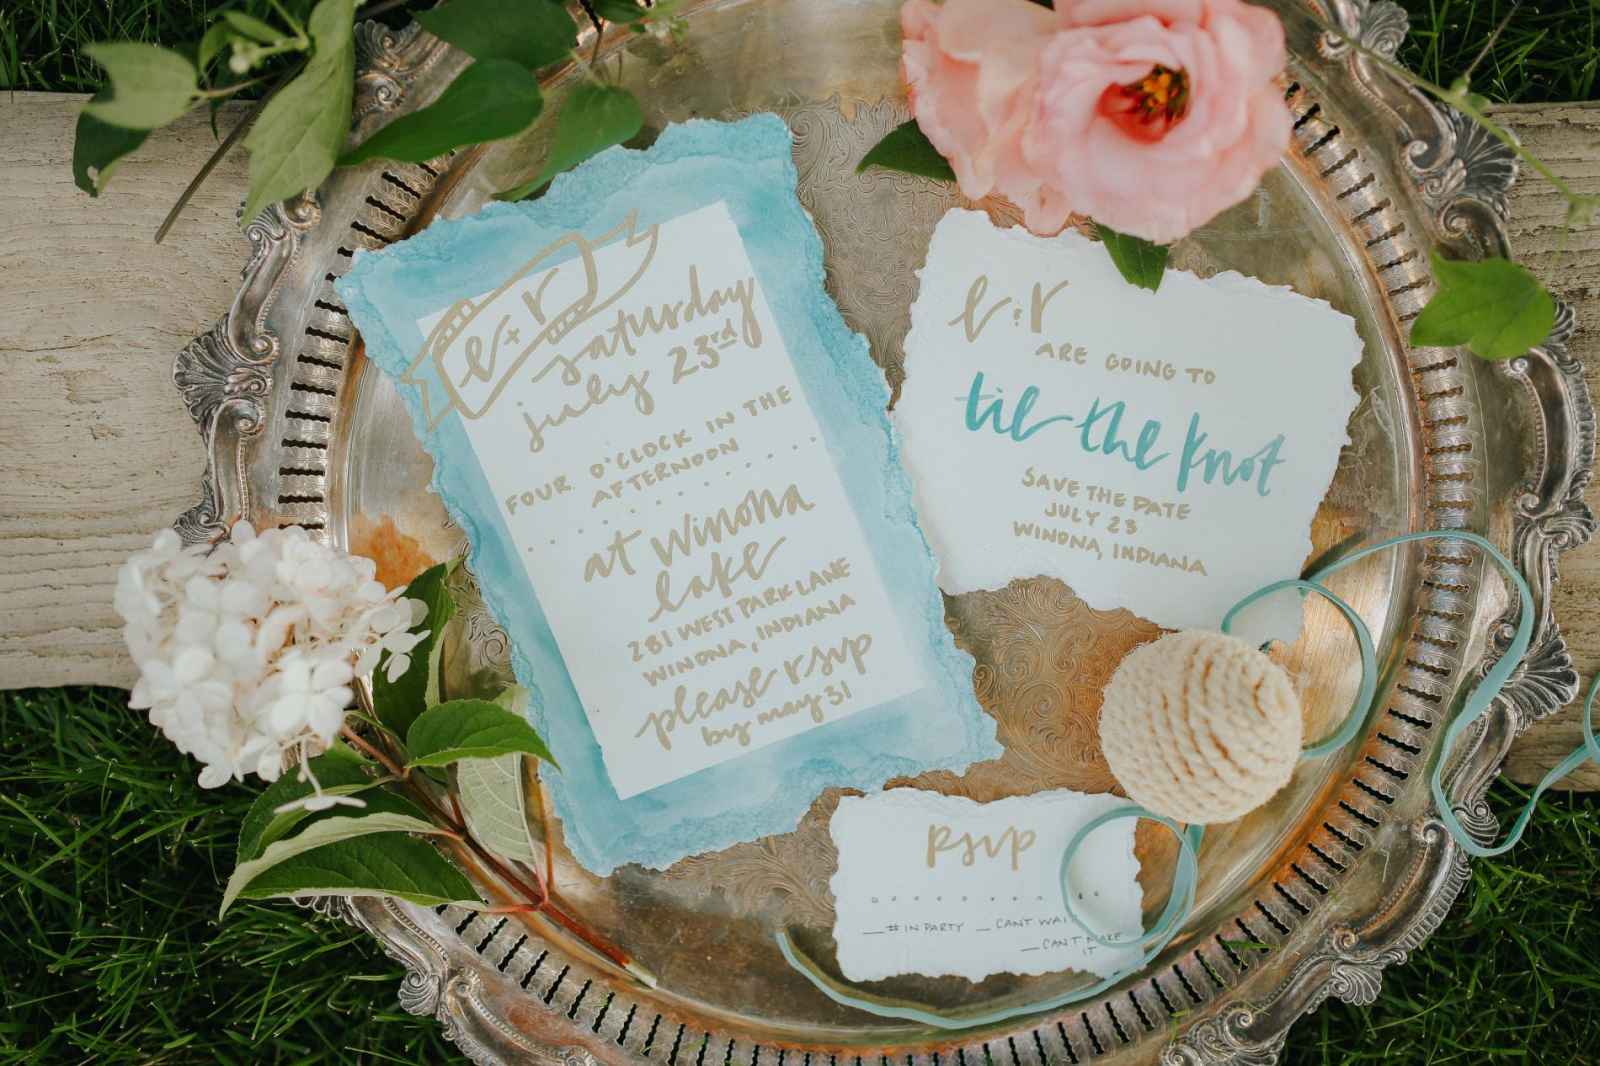 e + r
saturday
july 23rd
FOUR O'CLOCK IN THE
AFTERNOON
at winona
lake
281 WEST PARK LANE
WINONA, INDIANA
please rsvp
by may 31
e & r
ARE GOING TO
tie the knot
SAVE THE DATE
JULY 23
WINONA, INDIANA
rsvp
__ # IN PARTY __ CANT WAIT
__ CANT MAKE
IT